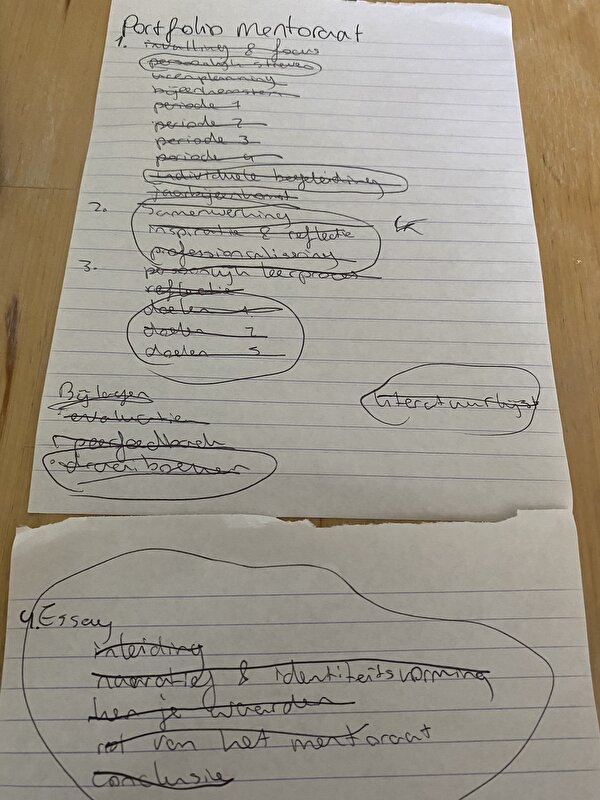 Portfolio mentoraat
1. invulling & focus
persoonlijk streven
jaarplanning
bijeenkomsten
periode 1
periode 2
periode 3
periode 4
individuele begeleiding
jaarbijeenkomst
2. Samenwerking
inspiratie & reflectie
professionalisering
3. persoonlijk leerproces
reflectie
doelen 1
doelen 2
doelen 3
Bijlagen
literatuurlijst
evaluaties
peerfeedback
4. Essay
inleiding
narratief & identiteitsvorming
ken je waarden
rol van het mentoraat
conclusie